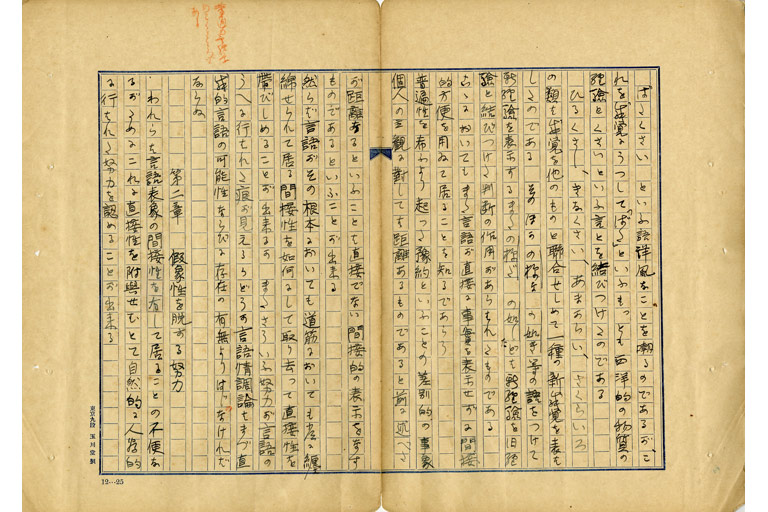 ばたくさい といふ語は洋風なことを嘲るのであるが、こ
れを嗅覚にうつして「ばた」といふもつとも西洋的の物質の
経験とくさいといふ言とを結びつけたのである
くさし、きなくさい、さくらいろ
の類も嗅覚を他のものと聯合せしめて一種の新嗅覚を表は
したのである そのほか の様な の如き等の語をつけて
新経験を表示する の如しなども新経験を旧経
験と結びつけた判断の作用があらはれたものである
こゝにおいてもまた言語が直接に事実を表示せずに間接
的方便を用ゐて居ることを知るであらう
普遍性を より起つた豫約といふことの差別的の事象
個人の主観に対しても距離あるものであると前に述べた
が距離あるといふことも直接でない間接的の表示をなす
ものであるといふことが出来る
然らば言語がその根本においても道筋においても常に纏
綿せられて居る間接性を如何にして取り去つて直接性を
帯びしめることが出来るか またさういふ努力が言語の
うへに行はれた痕が見えるかどうか 言語情調論もまづ直
接的言語の可能性ならびに存在の有無よりはじめなければ
ならぬ
第二章 仮象性を脱する努力
われらは言語表象の間接性を有して居ることの不便な
るがためにこれに直接性を附與せむとて自然的に人為的
に行はれた努力を認めることが出来る
東京九段 玉川堂製
12―25